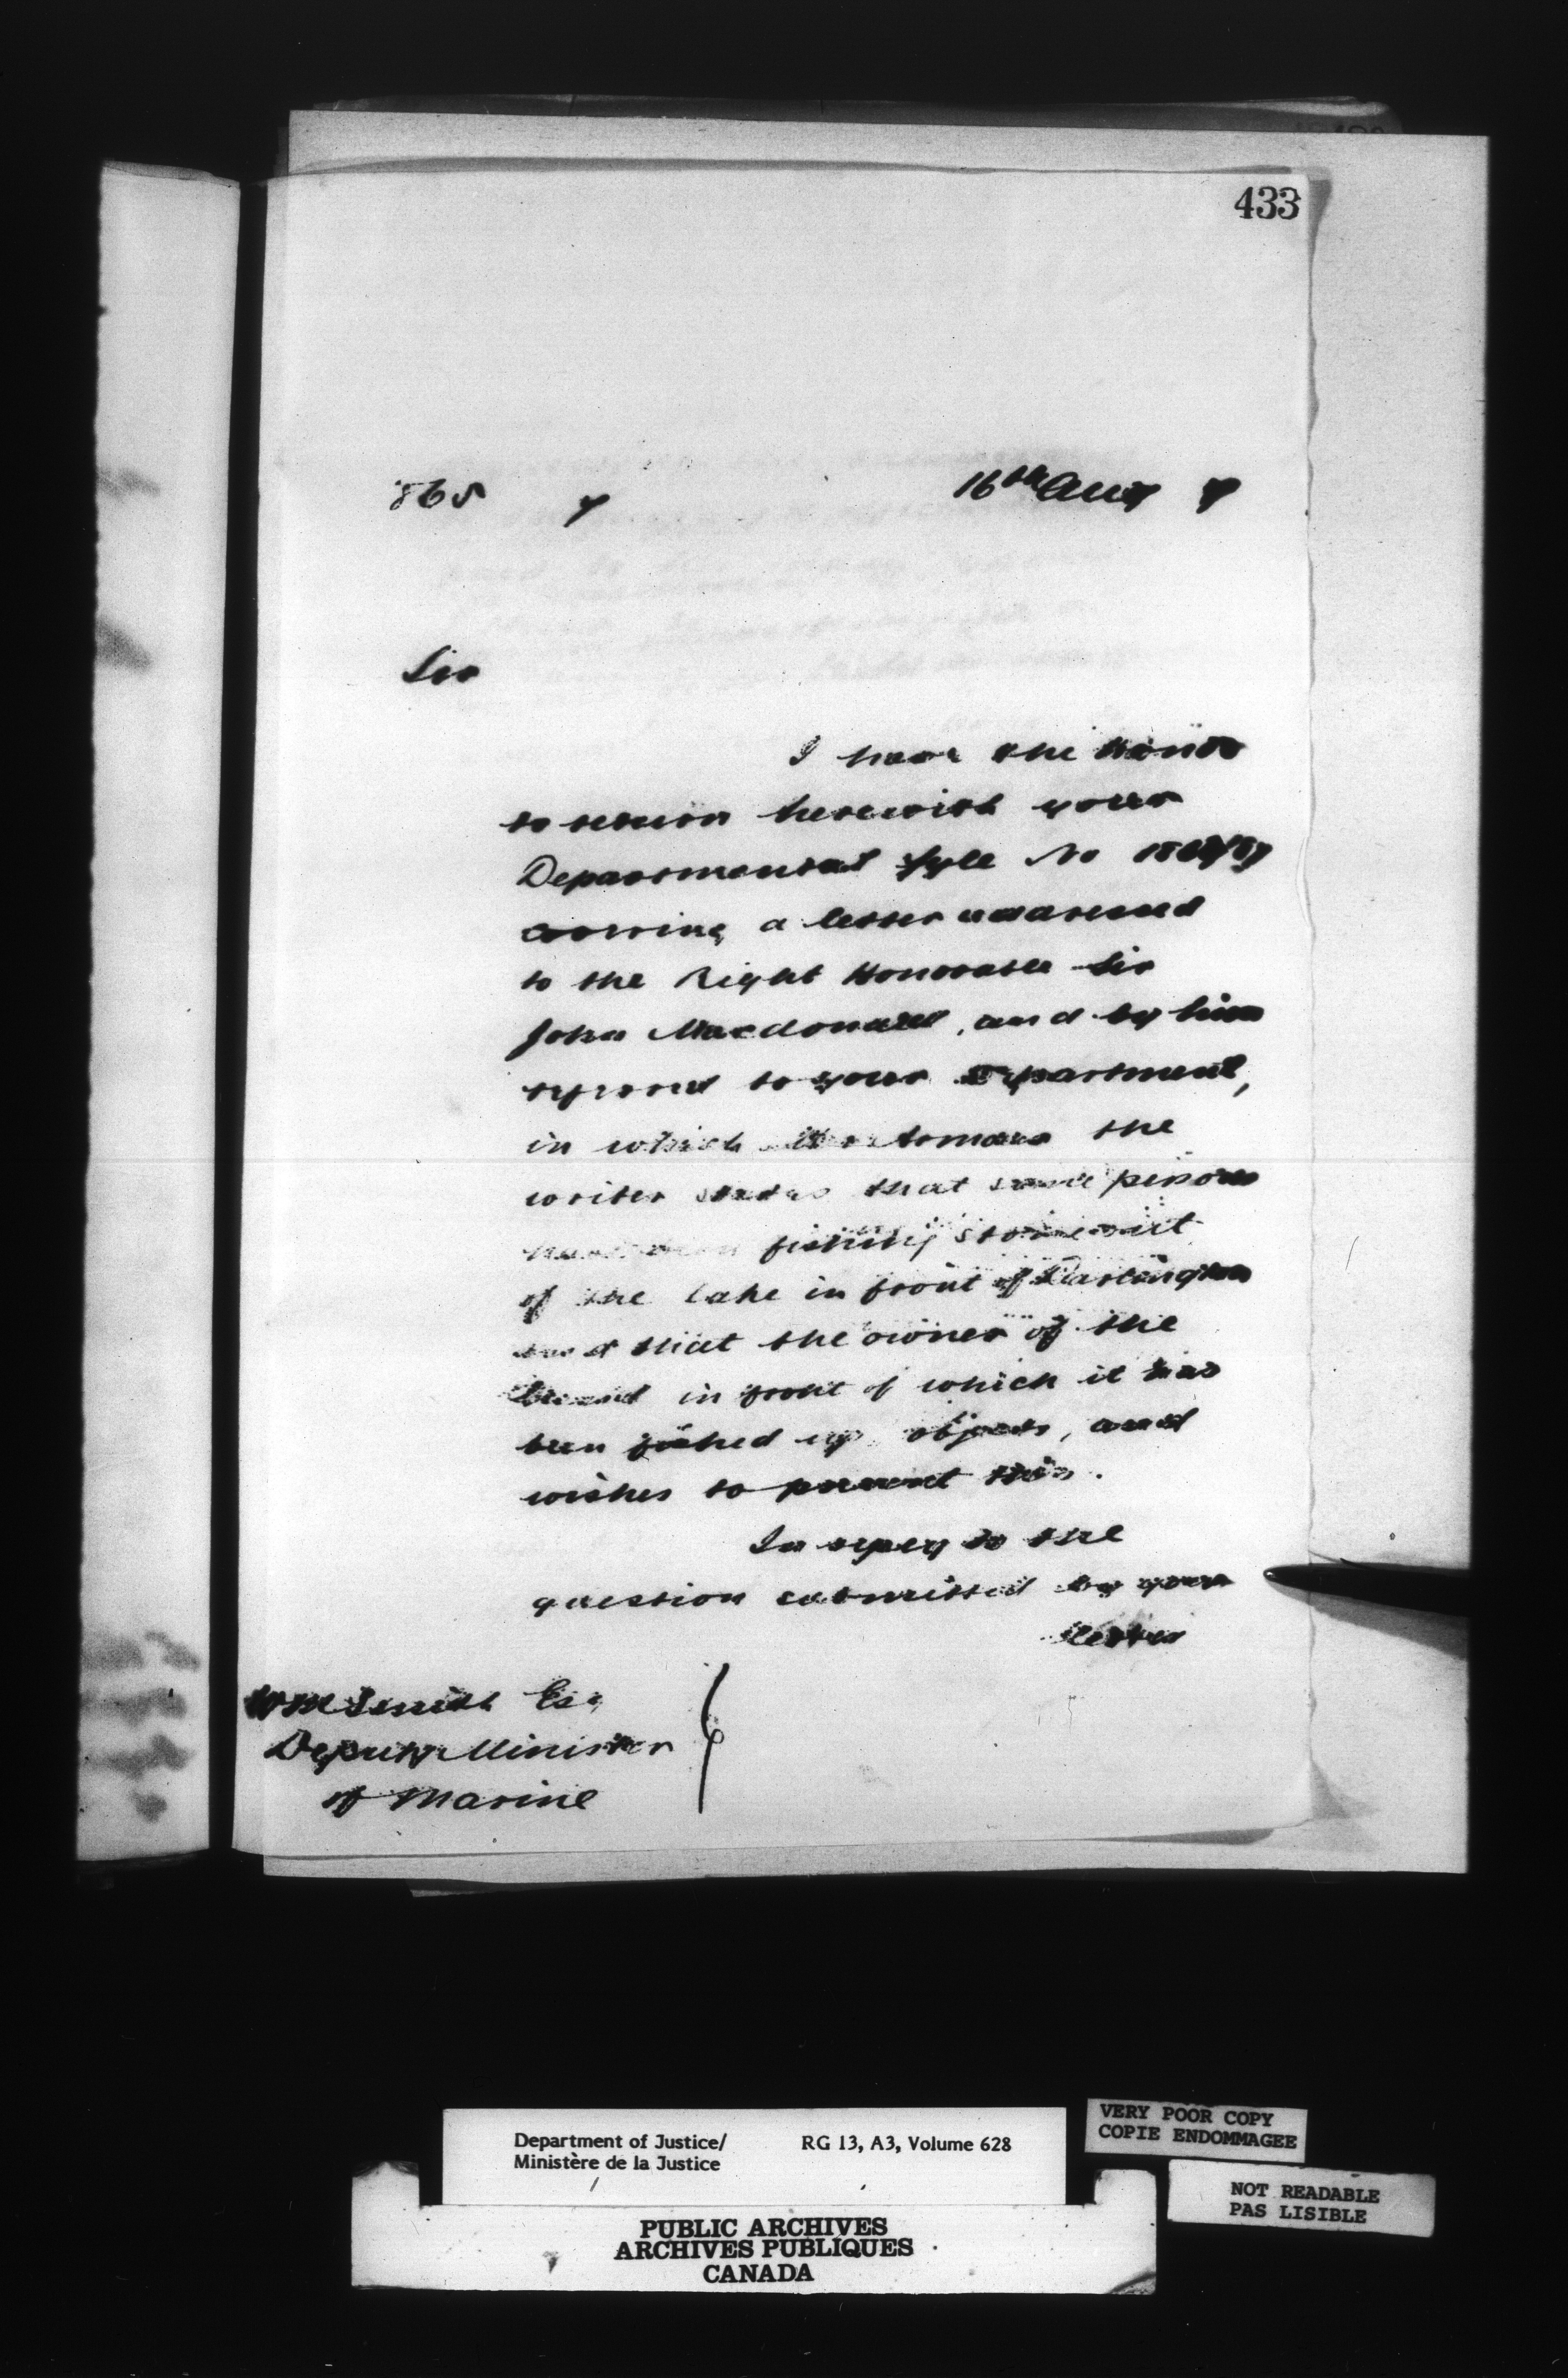 433
865 7 16th Aug 7
Sir
I have the honor
to return herewith your
Departmental fyle No
covering a letter addressed
to the Right Honorable Sir
John Macdonald, and by him
referred to your Department,
in which the
writer states that some persons
have been fishing stone out
of the lake in front of Darlington
and that the owner of the
land in front of which it has
been fished up objects, and
wishes to prevent this.
In reply to the
question submitted by your
letter
Wm Smith Esq
Deputy Minister
of Marine
Department of Justice/ RG 13, A3, Volume 628
Ministère de la Justice
VERY POOR COPY
COPIE ENDOMMAGEE
NOT READABLE
PAS LISIBLE
PUBLIC ARCHIVES
ARCHIVES PUBLIQUES
CANADA